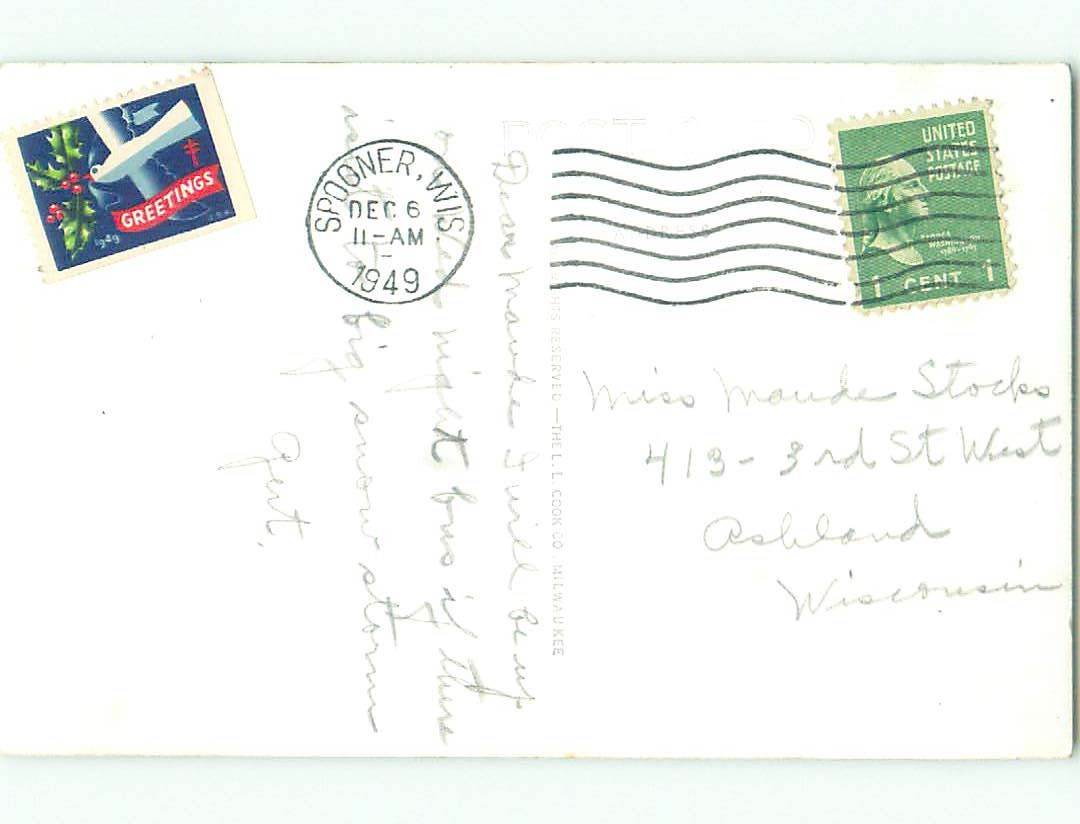 GREETINGS
1949
SPOONER, WIS.
DEC 6
11-AM
1949
POST CARD
ADDRESS
UNITED
STATES
POSTAGE
WASHINGTON
1 CENT 1
Dear Maude I will be up
on Wed night bus if there
is no big snow storm
Gert.
HTS RESERVED—THE L. L. COOK CO. MILWAUKEE
Miss Maude Stocks
413-3rd St West
Ashland
Wisconsin